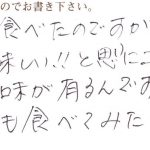 のでお書き下さい。
食べたのですが
味しい!!と思いこ
味が有るんです
も食べてみた